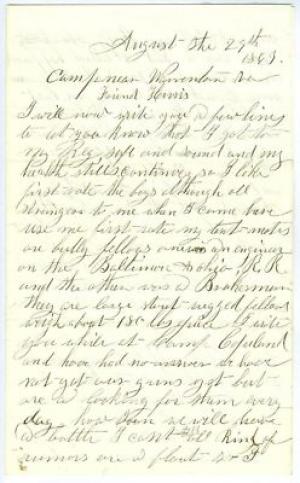 August the 29th
1863.
Camp near Warrenton Va
Friend Harris
I will now write you a few lines
to let you know that I got to
my Reg safe and sound and my
health still continues so I like
first rate the boys although all
strangers to me when I come here
use me first rate my tent mates
are bully fellows one is an engineer
on the Baltimore & Ohio R. R.
and the other was a Brakeman
they are large stout rugged fellows
weigh about 180 lbs apiece I write
you while at Camp Copeland
and have had no answer we have
not got our guns yet but
are a looking for them every
day how soon we will have
a battle I cant tell all kind of
rumors are a float &